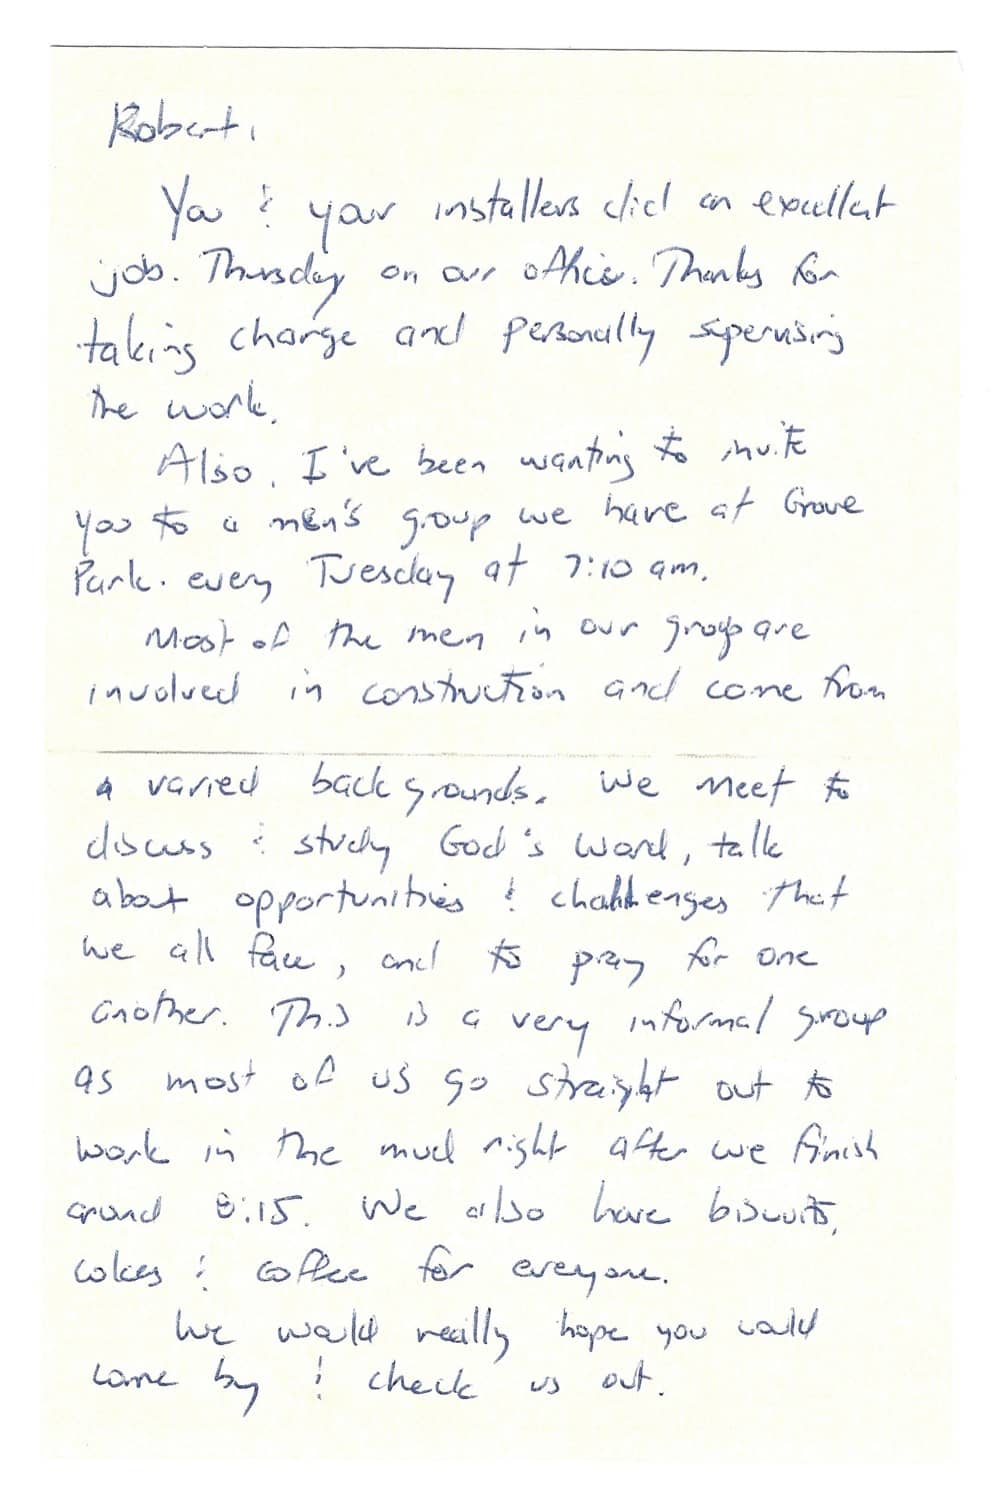 Robert,
You & your installers did an excellent
job. Thursday on our office. Thanks for
taking charge and personally supervising
the work.
Also, I've been wanting to invite
you to a men's group we have at Grove
Park. every Tuesday at 7:10 am.
Most of the men in our group are
involved in construction and come from
a varied backgrounds. We meet to
discuss & study God's Word, talk
about opportunities & challenges that
we all face, and to pray for one
another. This is a very informal group
as most of us go straight out to
work in the mud right after we finish
around 8:15. We also have biscuits,
cokes & coffee for everyone.
We would really hope you could
come by & check us out.